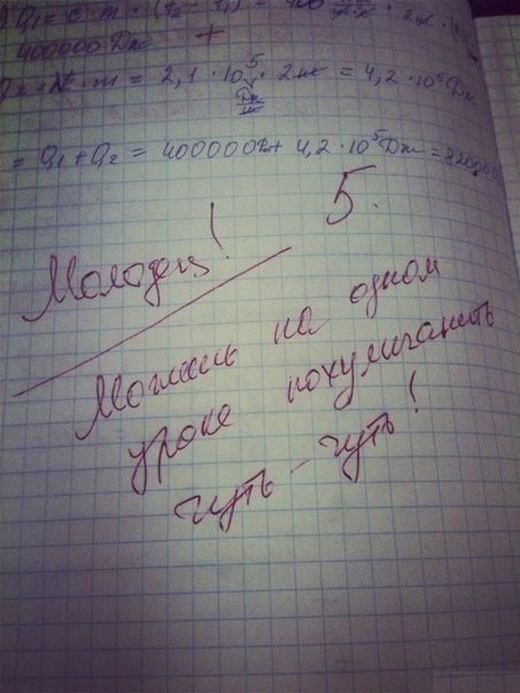 Q₁ = c · m · (t₂ - t₁) = 400 · 2кг ·
400000 Дж +
· m = 2,1 · 10⁵ Дж/кг · 2кг = 4,2 · 10⁵ Дж
= Q₁ + Q₂ = 400000Дж + 4,2 · 10⁵ Дж = 82000
5.
Молодец!
Можешь на одном
уроке похулиганить
чуть-чуть!